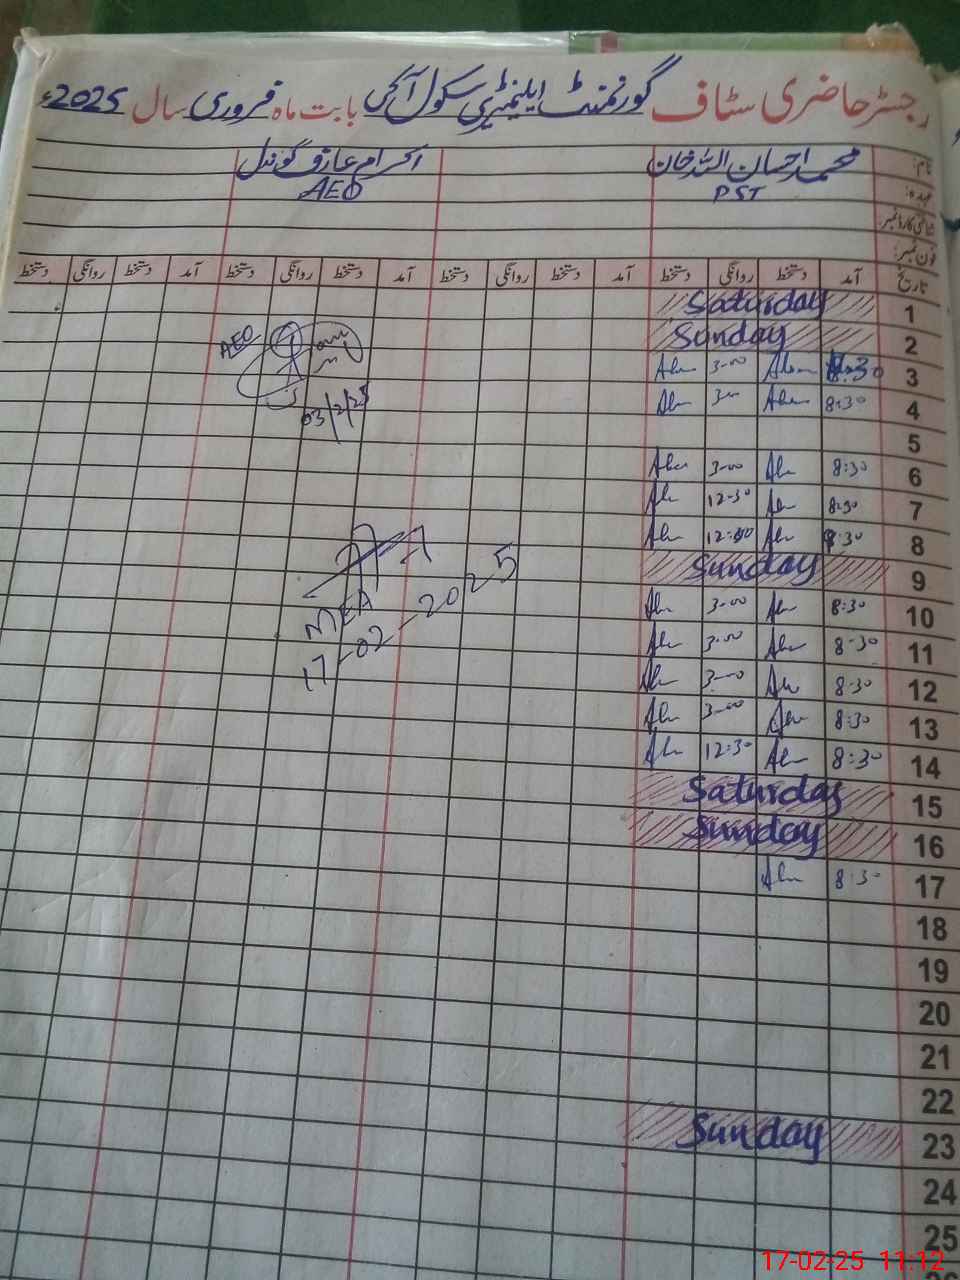 رجسٹر حاضری سٹاف گورنمنٹ ایلیمنٹری سکول آکی بابت ماہ فروری سال 2025ء
نام: محمد احسان اللہ خان اکرام عارف گوندل
عہدہ: PST AEO
شناختی کارڈ نمبر:
فون نمبر:
تاریخ آمد دستخط روانگی دستخط آمد دستخط روانگی دستخط آمد دستخط روانگی دستخط آمد دستخط روانگی دستخط
1 Saturday
2 Sunday
3 8:30 3-00
4 8:30
5
6 8:30 3-00
7 8:30 12-30
8 8:30
9 Sunday
10 8:30 3-00
11 8-30 3-00
12 8-30 3-00
13 8:30 3-00
14 8:30 12:30
15 Saturday
16 Sunday
17 8:30
18
19
20
21
22
23 Sunday
24
25
AEO
03/2/25
MEA
17-02-2025
17-02-25 11:12